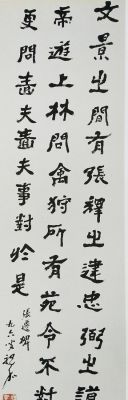 文景之間有張釋之建忠弼之謨
帝遊上林問禽狩所有苑令不對
更問嗇夫嗇夫事對於是
張遷碑